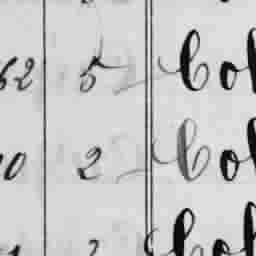 62 5 Col
10 2 Col
2 Col